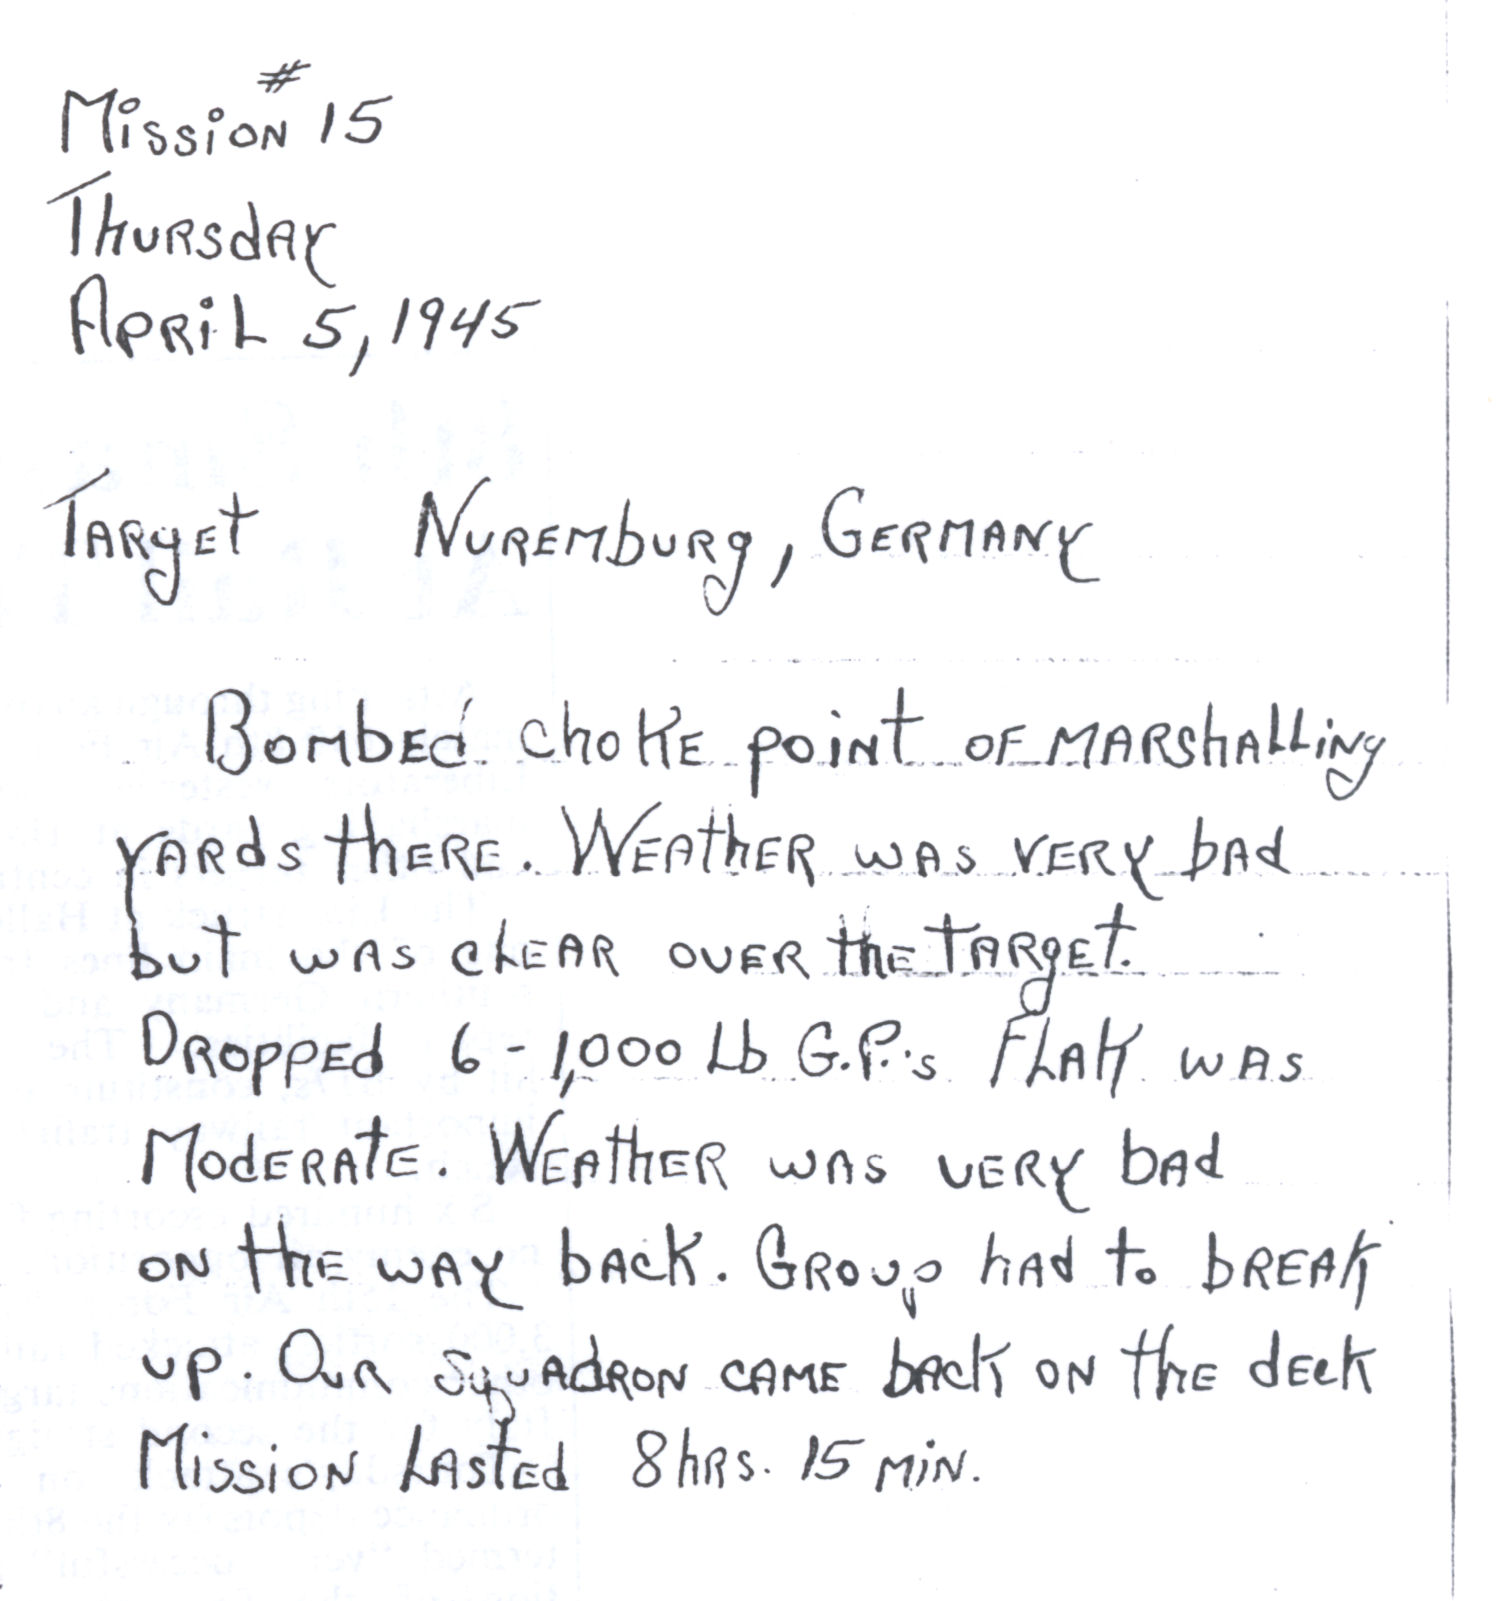 Mission # 15
Thursday
April 5, 1945
Target Nuremburg, Germany
Bombed choke point of marshalling
yards there. Weather was very bad
but was clear over the target.
Dropped 6-1,000 Lb G.P.'s Flak was
Moderate. Weather was very bad
on the way back. Group had to break
up. Our squadron came back on the deck
Mission Lasted 8 hrs. 15 min.